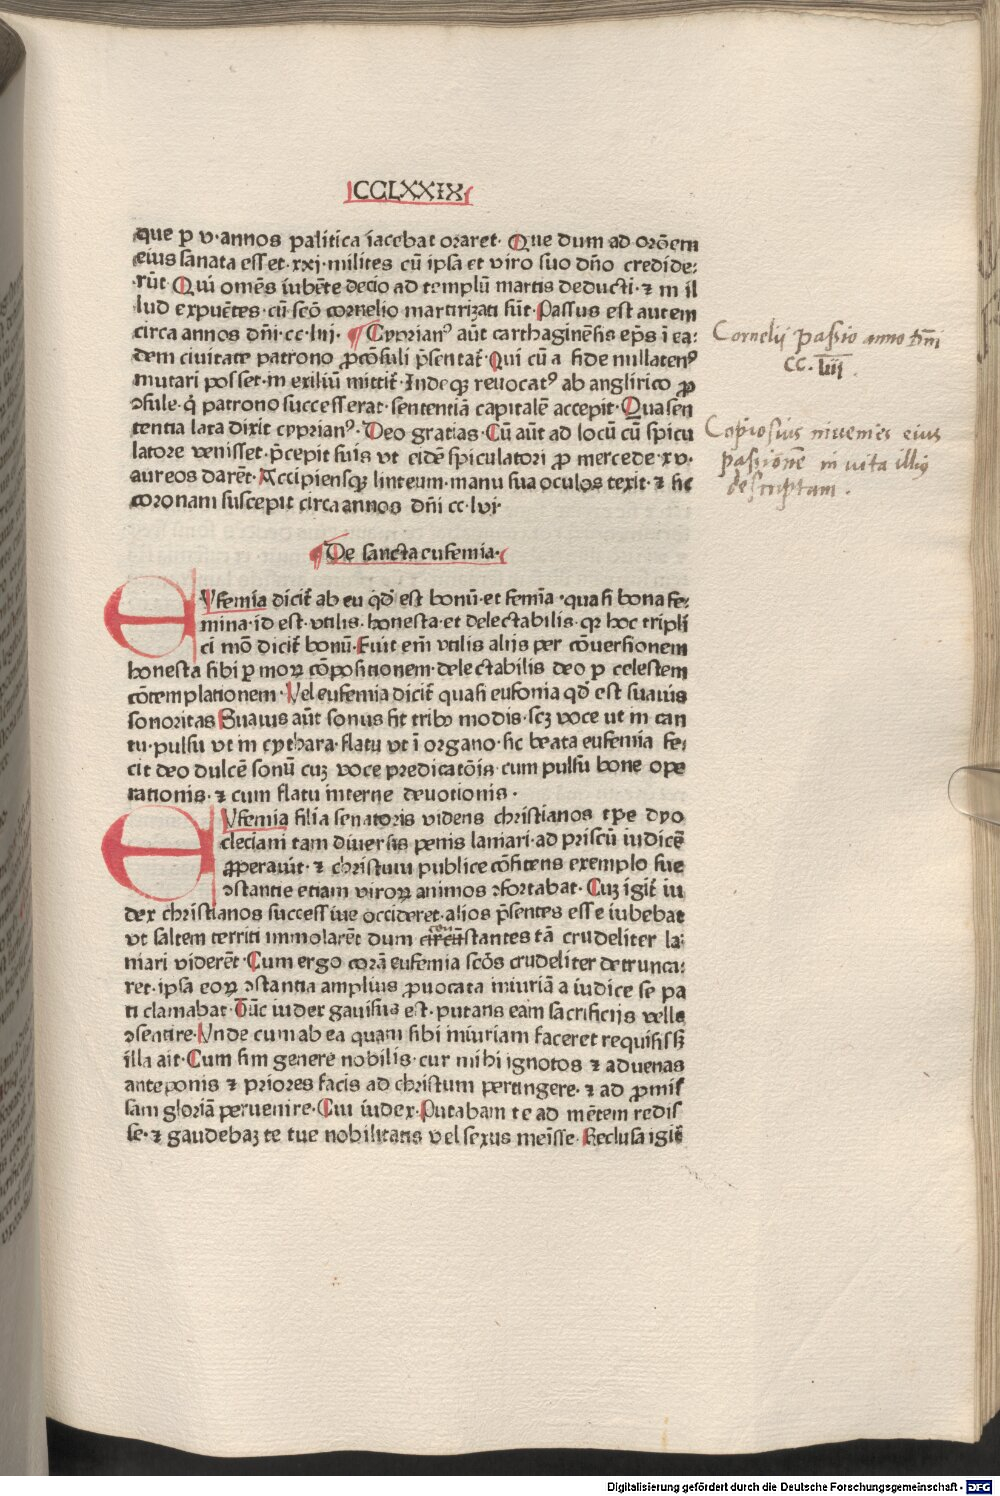 CCLXXIX
que ꝑ v·annos palitica iacebat oraret· Que dum ad orōem
eius sanata esset·xxi·milites cū ipsa et viro suo dño credide:
rūt Qui omēs iubēte decio ad templū martis deducti·⁊ in il
lud expuētes·cū scō cornelio martirizati sūt·Passus est autem
circa annos dñi·cc·liii· Ciprianꝰ aūt carthaginēsis ep̄s ī ea:
dem ciuitate patrono ꝓcōsuli p̄sentat̄·Qui cū a fide nullatenꝰ
mutari posset·in exiliū mittit̄·Indeqꝫ reuocatꝰ ab anglirico ꝓ
ↄsule·q̇ patrono successerat·sententiā capitalē accepit·Qua sen
tentia lata dixit cyprianꝰ·Deo gratias·Cū aūt ad locū cū spicu
latore venisset·p̄cepit suis vt eidē spiculatori ꝓ mercede·xv·
aureos darēt·Accipiensqꝫ linteum·manu sua oculos texit·⁊ sic
coronam suscepit circa annos dñi cc·lvi·
Cornelij passio anno dñi
CC·liij.
Copiosius inuenies eius
passionē in vita illiꝰ
descriptam.
De sancta eufemia·
EVfemia dicit̄ ab eu qd̄ est bonū·et femīa·quasi bona fe:
mina·id est·vtilis·honesta·et delectabilis·qꝛ hoc tripli
ci mō dicit̄ bonū·Fuit em̄ vtilis alijs per cōuersionem
honesta sibi ꝑ moꝝ cōpositionem·delectabilis deo ꝑ celestem
cōtemplationem·Vel eufemia dicit̄ quasi eufonia qd̄ est suauis
sonoritas Suauis aūt sonus fit tribꝰ modis·scꝫ voce ut in can
tu·pulsu vt in cythara·flatu vt ī organo·sic beata eufemia fe:
cit deo dulcē sonū cuꝫ voce predicatōis·cum pulsu bone ope
rationis·⁊ cum flatu interne deuotionis·
EVfemia filia senatoris videns christianos tp̄e dyo
cleciani tam diuersis penis laniari·ad priscū iudicē
ꝓperauit·⁊ christum publice cōfitens exemplo sue
ↄstantie etiam viroꝝ animos ↄfortabat·Cuꝫ igit̄ iu
dex christianos successiue occideret·alios p̄sentes esse iubebat
vt saltem territi immolarēt dum circūstantes tā crudeliter la:
niari viderēt·Cum ergo corā eufemia scōs crudeliter detrunca:
ret·ipsa eoꝝ ↄstantia amplius ꝓuocata iniuriā a iudice se pa
ti clamabat·Tūc iudex gauisus est·putans eam sacrificijs velle
ↄsentire·Vnde cum ab ea quam sibi iniuriam faceret requisisset
illa ait·Cum sim genere nobilis·cur mihi ignotos ⁊ aduenas
anteponis ⁊ priores facis ad christum pertingere·⁊ ad ꝓmis
sam gloriā peruenire·Cui iudex·Putabam te ad mētem redis
se·⁊ gaudebaꝫ te tue nobilitatis vel sexus meīsse·Reclusa igit̄
Digitalisierung gefördert durch die Deutsche Forschungsgemeinschaft - DFG